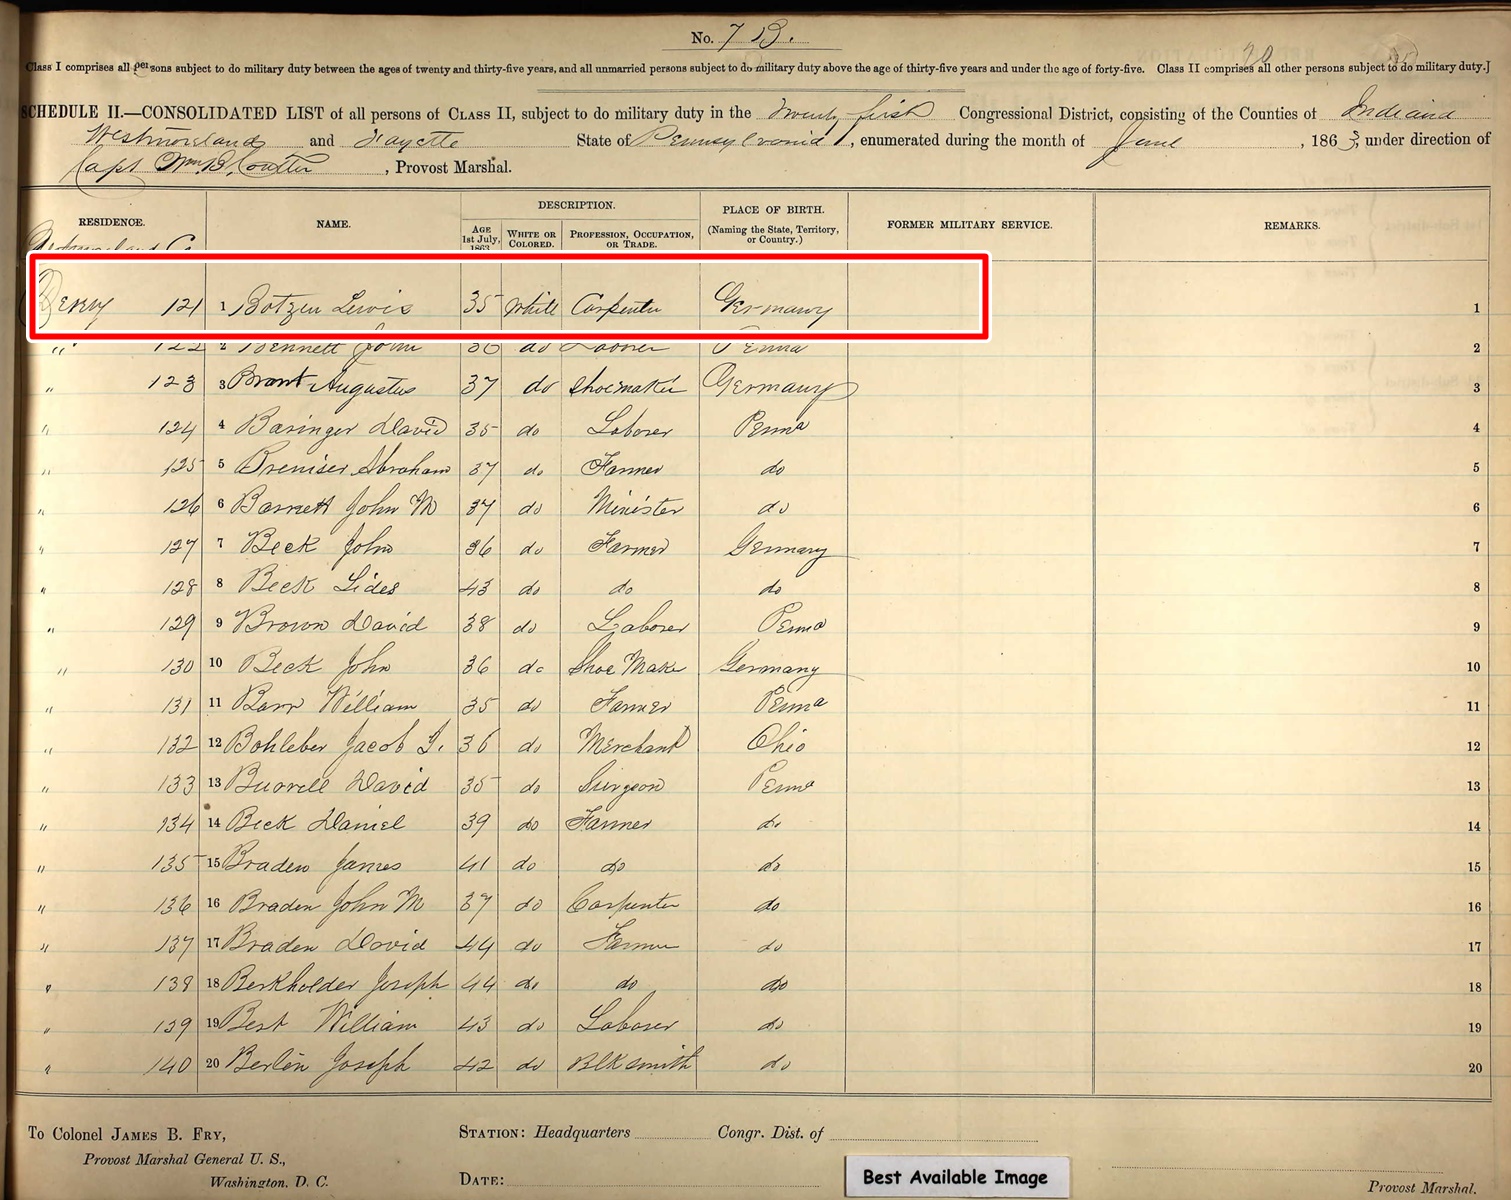 No. 7 B.
Class I comprises all persons subject to do military duty between the ages of twenty and thirty-five years, and all unmarried persons subject to do military duty above the age of thirty-five years and under the age of forty-five. Class II comprises all other persons subject to do military duty.]
SCHEDULE II.—CONSOLIDATED LIST of all persons of CLASS II, subject to do military duty in the Twenty first Congressional District, consisting of the Counties of Indiana
Westmoreland and Fayette State of Pennsylvania, enumerated during the month of June, 1863, under direction of
Capt Wm. B. Coulter, Provost Marshal.
RESIDENCE. NAME. DESCRIPTION. PLACE OF BIRTH. (Naming the State, Territory, or Country.) FORMER MILITARY SERVICE. REMARKS.
AGE 1st July, 1863. WHITE OR COLORED. PROFESSION, OCCUPATION, OR TRADE.
Westmoreland Co
Derry 121 1 Botzen Lewis 35 White Carpenter Germany 1
" 122 2 Bennett John 36 do Laborer Penna 2
" 123 3 Brant Augustus 37 do Shoemaker Germany 3
" 124 4 Basinger David 35 do Laborer Penna 4
" 125 5 Breniser Abraham 37 do Farmer do 5
" 126 6 Barnett John M 37 do Minister do 6
" 127 7 Beck John 36 do Farmer Germany 7
" 128 8 Beck Lides 43 do do do 8
" 129 9 Brown David 38 do Laborer Penna 9
" 130 10 Beck John 36 do Shoe Maker Germany 10
" 131 11 Barr William 35 do Farmer Penna 11
" 132 12 Bohleber Jacob I. 36 do Merchant Ohio 12
" 133 13 Burrell David 35 do Surgeon Penna 13
" 134 14 Beck Daniel 39 do Farmer do 14
" 135 15 Braden James 41 do do do 15
" 136 16 Braden John M 37 do Carpenter do 16
" 137 17 Braden David 44 do Farmer do 17
" 138 18 Berkholder Joseph 44 do do do 18
" 139 19 Best William 43 do Laborer do 19
" 140 20 Berlin Joseph 42 do Blksmith do 20
To Colonel JAMES B. FRY,
Provost Marshal General U. S.,
Washington. D. C.
STATION: Headquarters Congr. Dist. of
DATE:
Best Available Image
Provost Marshal.